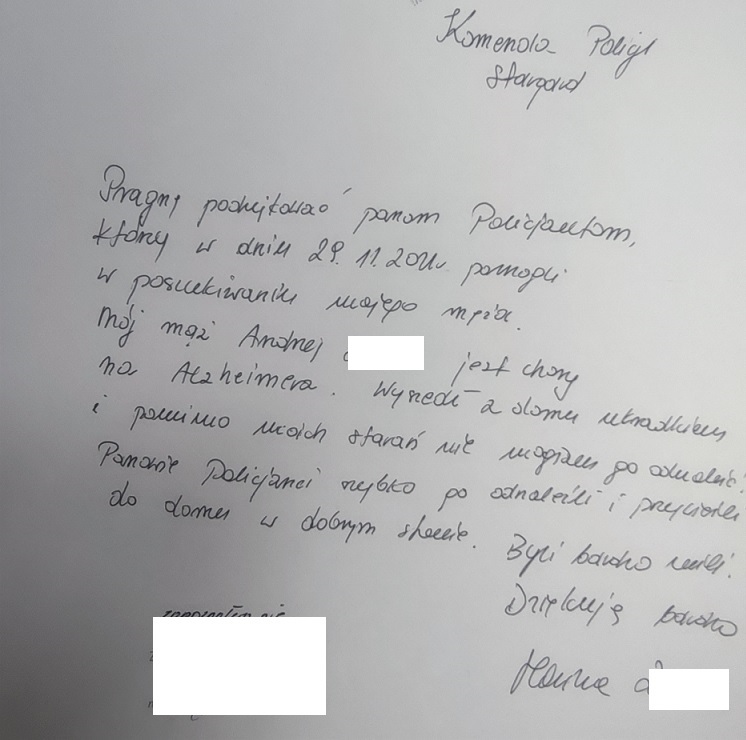 Komenda Policji
Stargard
Pragnę podziękować panom Policjantom,
którzy w dniu 29.11.2021r. pomogli
w poszukiwaniu mojego męża.
Mój mąż Andrzej jest chory
na Alzheimera. Wyszedł z domu ukradkiem
i pomimo moich starań nie mogłam go odnaleźć.
Panowie Policjanci szybko go odnaleźli i przywieźli
do domu w dobrym stanie. Byli bardzo mili.
Dziękuję bardzo
Hanna